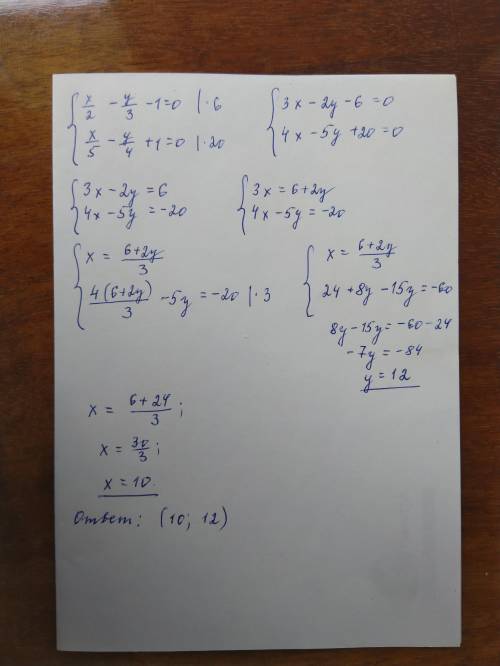 x/2 - y/3 - 1=0 |·6
x/5 - y/4 + 1=0 |·20
3x - 2y - 6 = 0
4x - 5y + 20 = 0
3x - 2y = 6
4x - 5y = -20
3x = 6+2y
4x - 5y = -20
x = (6+2y)/3
4(6+2y)/3 - 5y = -20 |·3
x = (6+2y)/3
24 + 8y - 15y = -60
8y - 15y = -60 - 24
-7y = -84
y = 12
x = (6+24)/3;
x = 30/3;
x = 10.
Ответ: (10; 12)